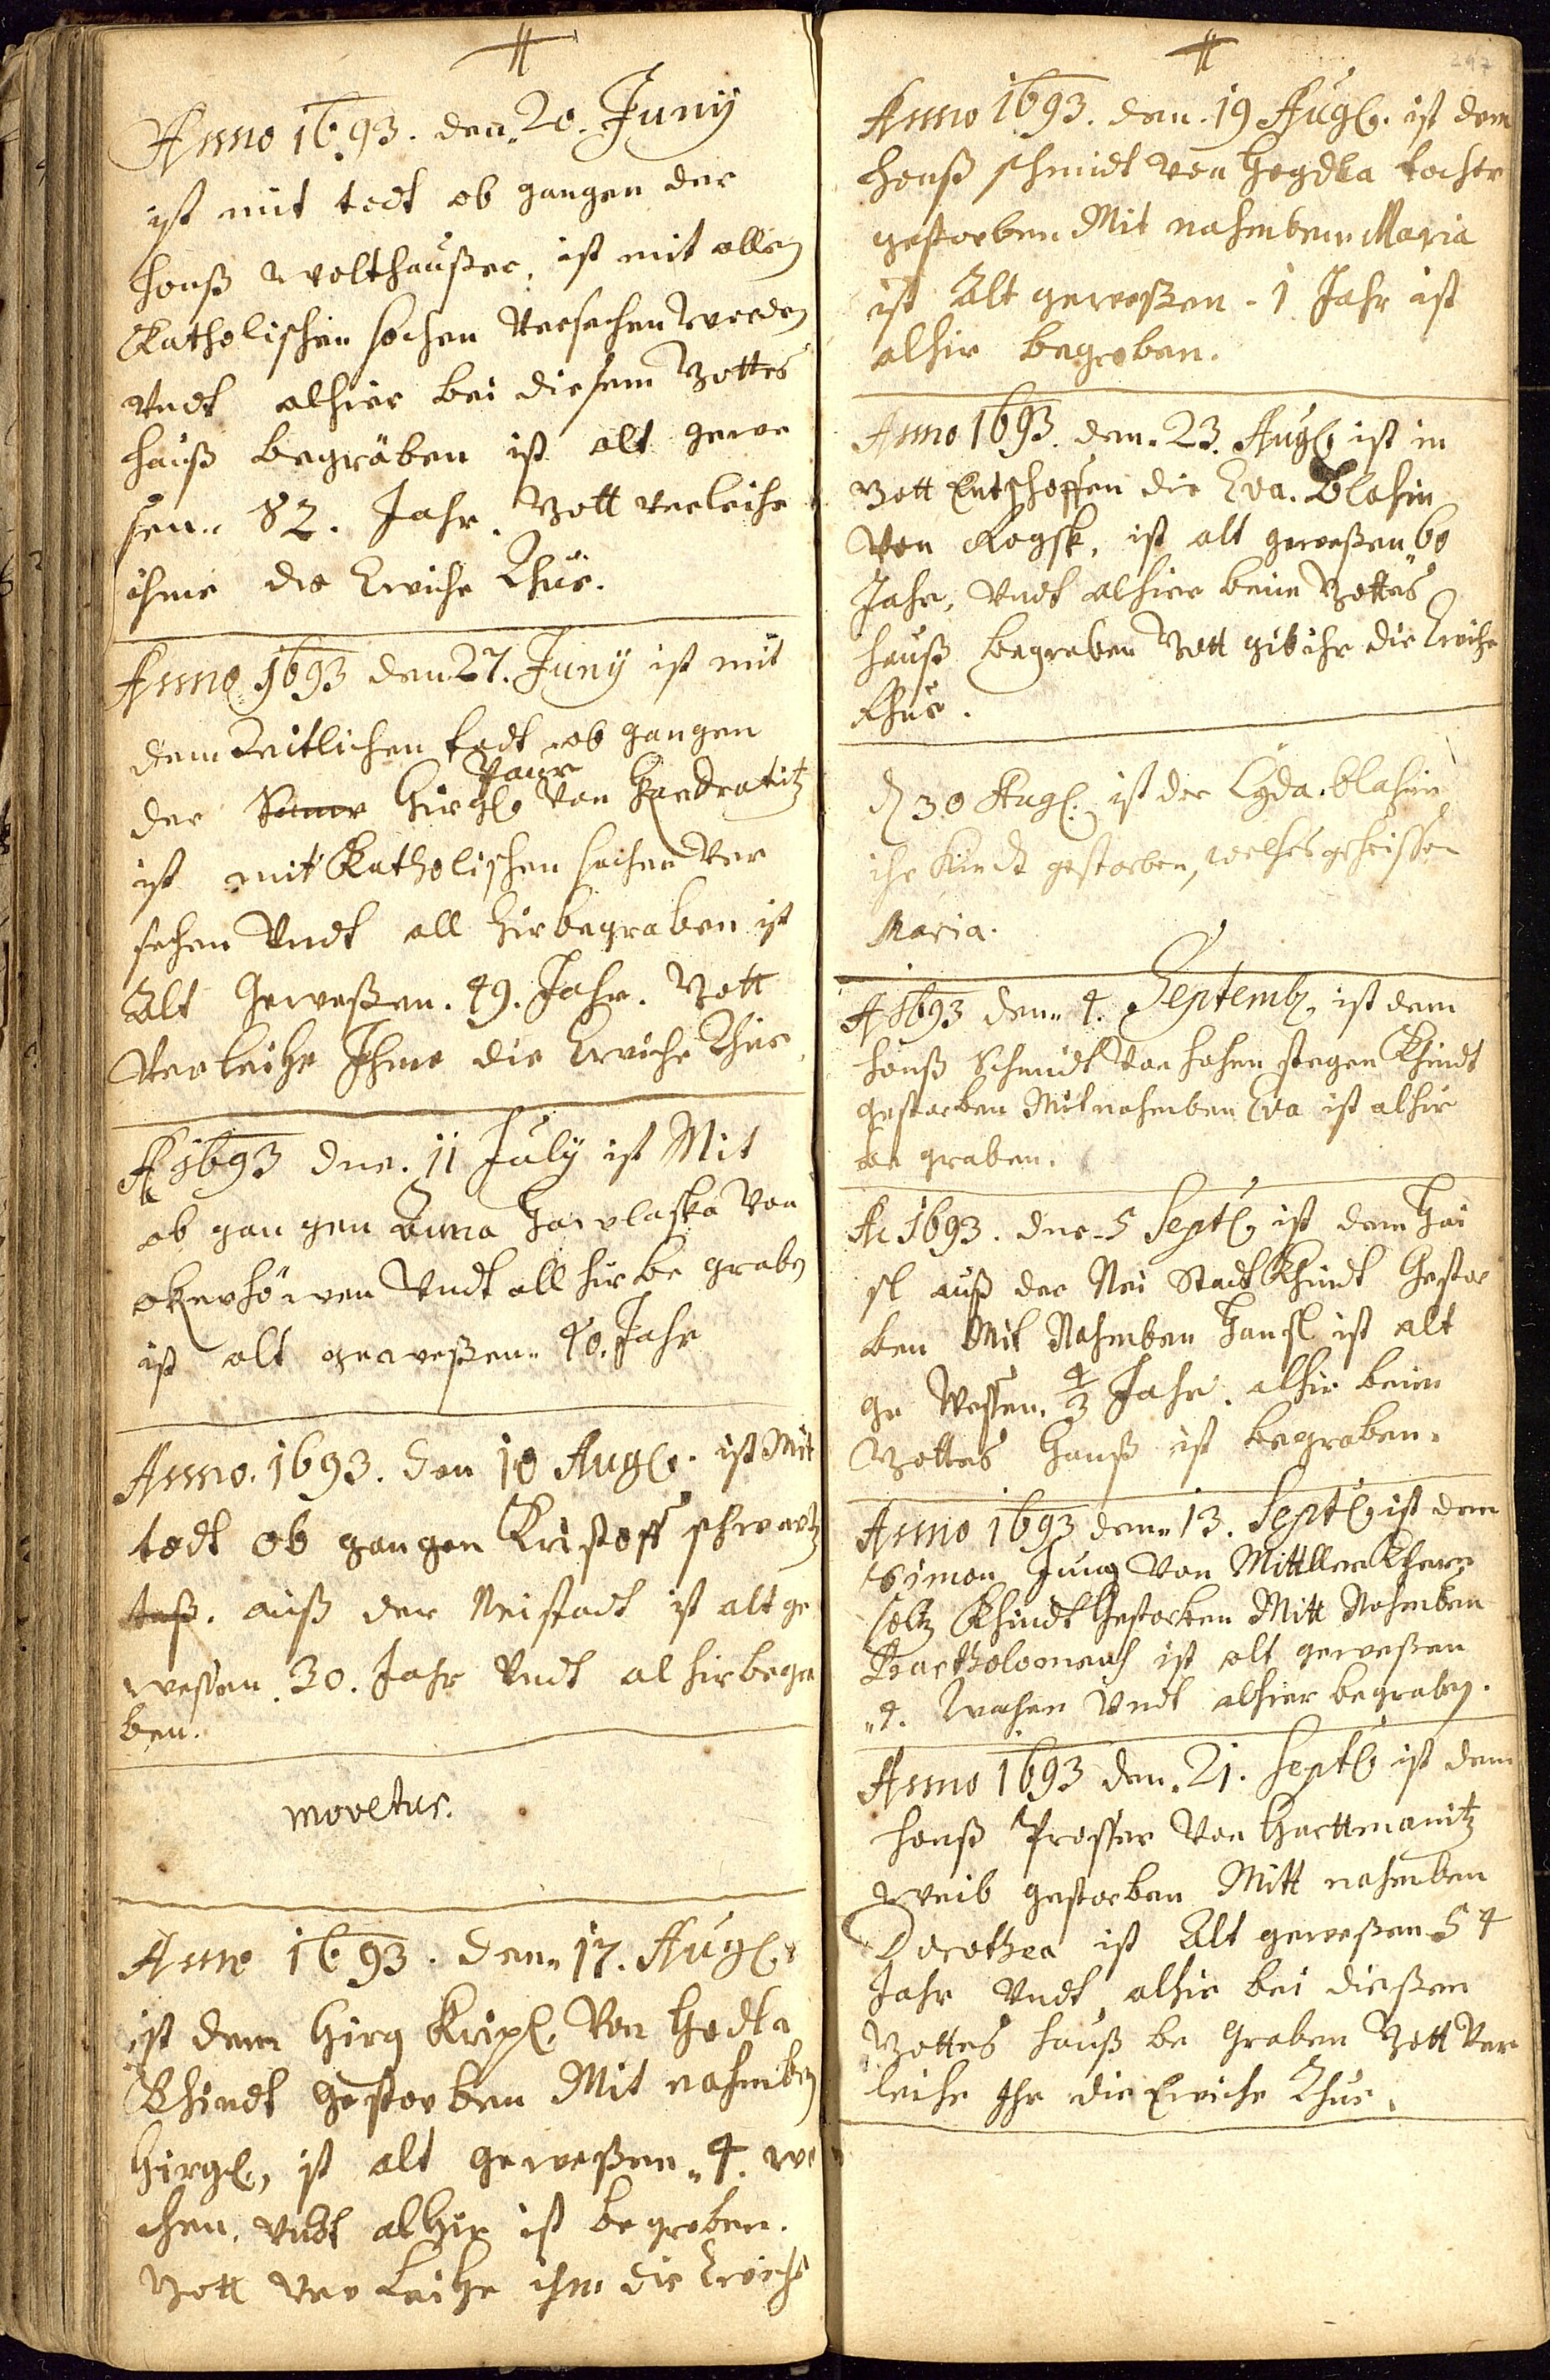 Anno 1693. den 20. Juny
ist mit todt ab gangen der
Hanß Wolthaußer, ist mit allen
Katholischen sachen versechen worden
Vndt alhier bei diesem Gottes
hauß begräben ist alt gewe
sen 82. Jahr. Gott verleihe
ihme die Ewiche Rhue.
Anno 1693 den 27. Juny ist mit
dem Zeitlichen todt ab gangen
Paur
der Hirgl Von Kundratitz
ist mit Katholischen sachen ver
sehen Vndt all hir begraben ist
Alt Geweßen. 49. Jahr. Gott
Verleihe Ihme die Ewiche Rhue
A 1693 den. 11 July ist Mit
ab gangen Anna Hawlaska Von
Vndt all hir be graben
ist alt geweßen 40. Jahr
Anno. 1693. den 10 Augl. ist Mit
todt ab gangen Kristoff schwartz
auß der Neistadt ist alt ge
wessen. 30. Jahr Vndt al hir begra
ben.
movetur.
Anno 1693. den 17. Augl.
ist dem Hirg Von Hodla
Khindt Gestorben Mit nahmben
Hirgl, ist alt geweßen 4. wo
chen. Vndt alhir ist begraben.
Gott verleihe ihm die Ewiche
297
Anno 1693. den. 19 Augl. ist dem
Hanß schmidt von Hogdla tochter
gestorben Mit nahmben Maria
ist Alt geweßen 1 Jahr ist
alhir begroben.
Anno 1693. den 23. Augl ist in
Gott Entschoffen die Eva. Blahin
Von Rogsk, ist alt geweßen 60
Jahr, Vndt alhier beim Gottes
hauß begraben Gott gib ihr die Ewiche
Rhue.
d 30 Augl. ist der Lyda. blahin
ihr Kindt gestorben, welches geheissen
Maria.
A 1693 den 4. Septemb, ist dem
Hanß Schmidt Von hohen stegen Khindt
gestorben Mit nahmben Eva ist alhir
be graben.
Ao 1693. den 5 Septl, ist dem Hai
sl auß der Nei Stadt Khindt Gestor
ben Mit Nahmben Hansl ist alt
ge Wessen. Jahr. alhir beim
Gottes Hauß ist begroben.
Anno 1693 den 13. Septl ist dem
Simon Jung Von Mittllern
Khindt Gestorben Mitt Nahmben
Bartholomeus ist alt geweßen
4. Wochen Vndt alhier begraben.
Anno 1693 den. 21. Septl ist dem
Hanß Prosser Von Harttmanitz
Weib gestorben Mitt nahmben
Dorothea ist Alt geweßen 54
Jahr Vndt alhir bei dießem
Gottes hauß be Graben Gott Ver
leihe Ihr die Ewiche Rhue.